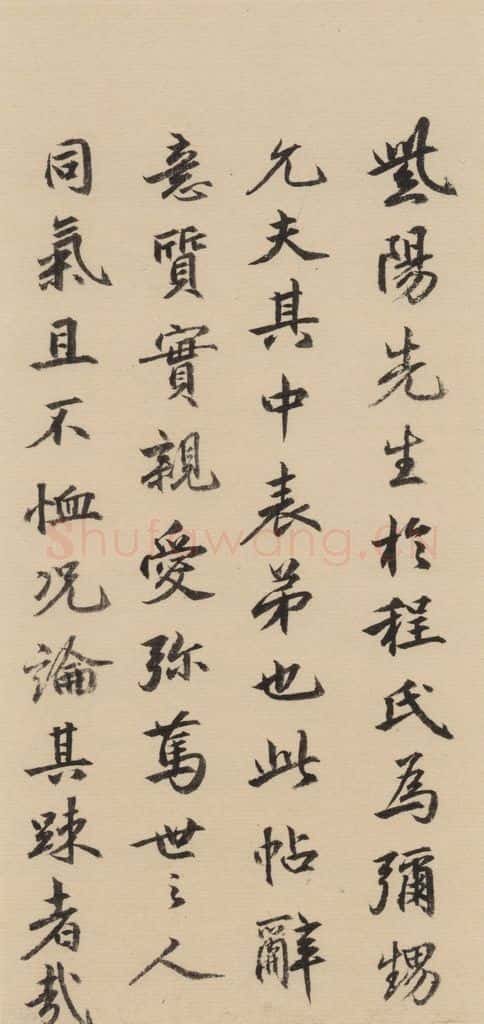 紫陽先生於程氏為彌甥
允夫其中表弟也此帖辭
意質實親愛弥篤世之人
同氣且不恤况論其踈者哉
Shufawang.CN